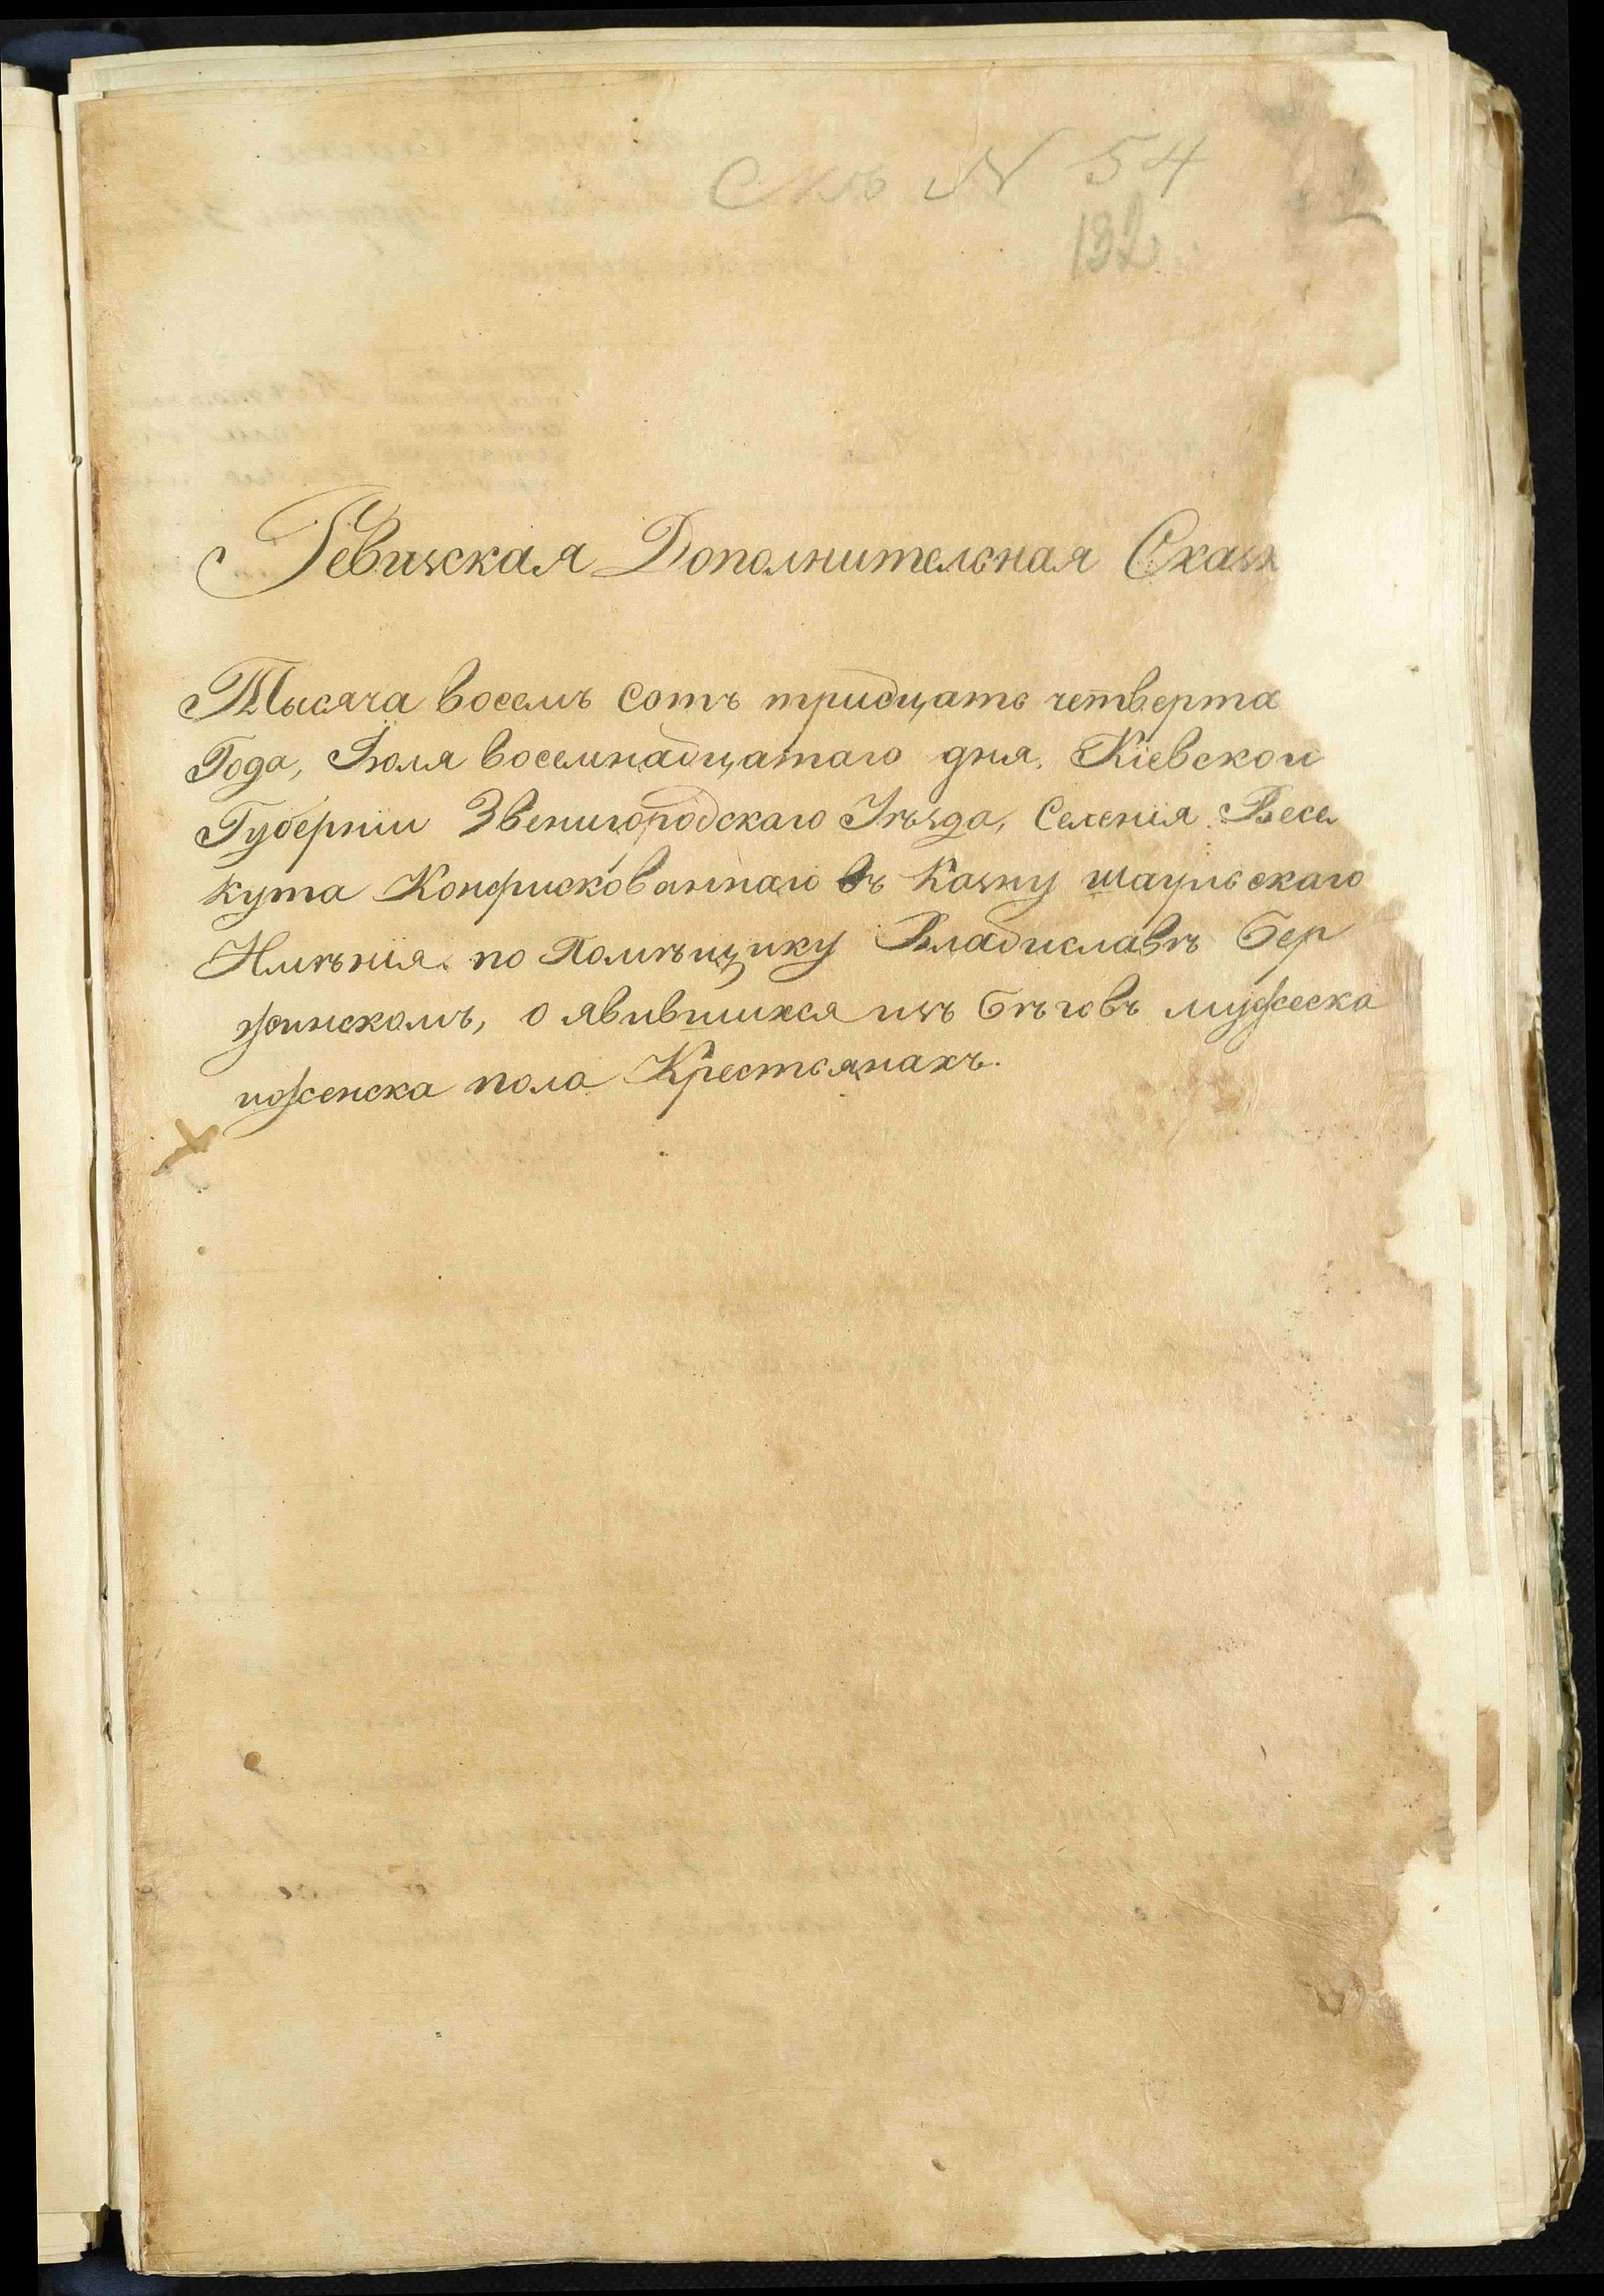 Скъ N 54
132
Ревизская Дополнительная Сказк
Тысяча восемъ сотъ тридцать четверта
Года, Іюля восемнадцатаго дня, Кіевской
Губерніи Звенигородскаго Уѣзда, Селенія Весел
кута Конфискованнаго въ Казну шаулиского
Имѣнія по Помѣщику Владиславѣ Бер
жинскомъ, о явившихся изъ бѣговъ мужеска
иженска пола Крестьянахъ.